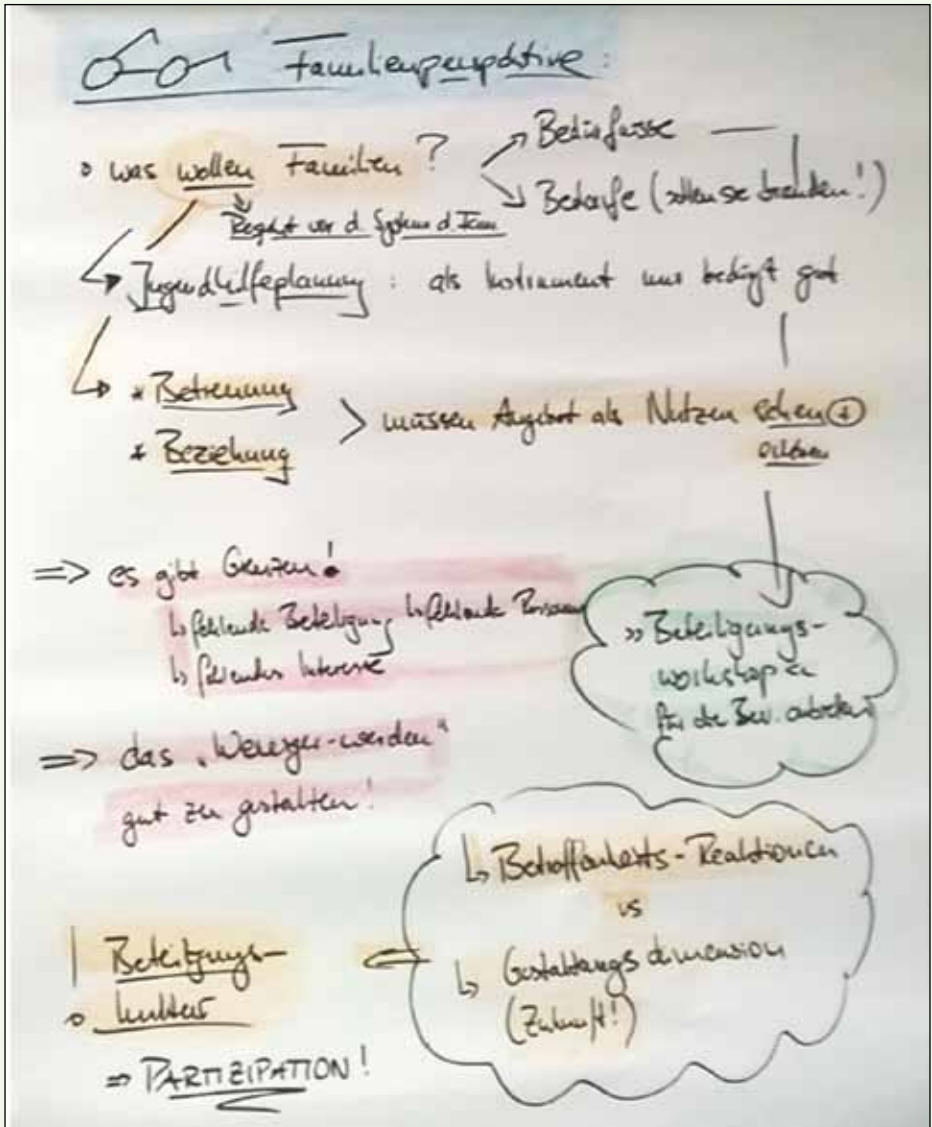 Familienperspektive:
° was wollen Familien?
Bedürfnisse
Bedarfe (sollen sie brauchen!)
Respekt vor d. System d. Fam.
Jugendhilfeplanung: als Instrument nur bedingt gut
* Betreuung
* Beziehung
müssen Angebot als Nutzen sehen +
=> es gibt Grenzen!
fehlende Beteiligung fehlende
fehlendes Interesse
» Beteiligungs-
workshop
für die
=> das „Weniger-werden“
gut zu gestalten!
Betroffenheits-Reaktionen
vs
Gestaltungsdimension
(Zukunft!)
Beteiligungs-
kultur
=> PARTIZIPATION!